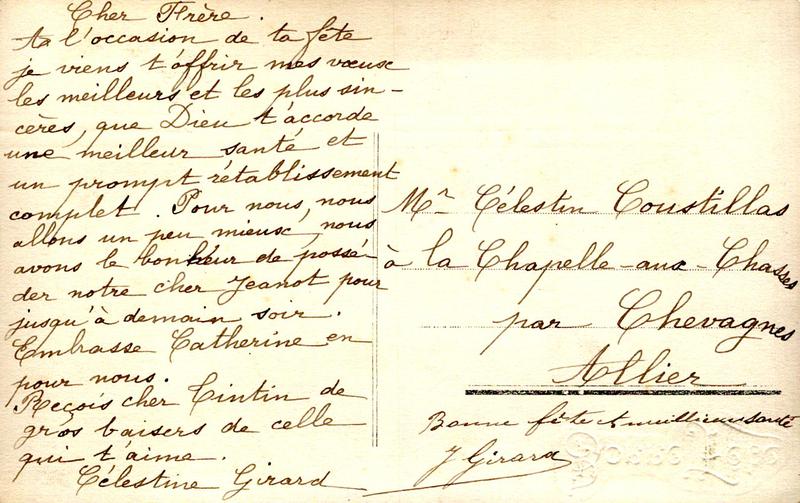 Cher Frère.
A l'occasion de ta fête
je viens t'offrir mes vœux
les meilleurs et les plus sin-
cères, que Dieu t'accorde
une meilleur santé et
un prompt rétablissement
complet. Pour nous, nous
allons un peu mieux, nous
avons le bonheur de possé-
der notre cher Jeanot pour
jusqu'à demain soir.
Embrasse Catherine en
pour nous.
Reçois cher Tintin de
gros baisers de celle
qui t'aime.
Célestine Girard
Mr Célestin Coustillas
à la Chapelle-aux-Chasses
par Chevagnes
Allier
Bonne fête et meilleure santé
J Girard
Bonne Fête